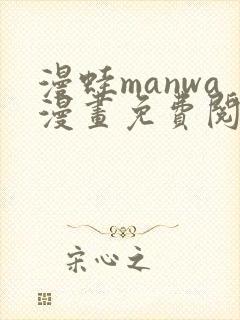 漫蛙manwa
漫畫免費閱
宋心之